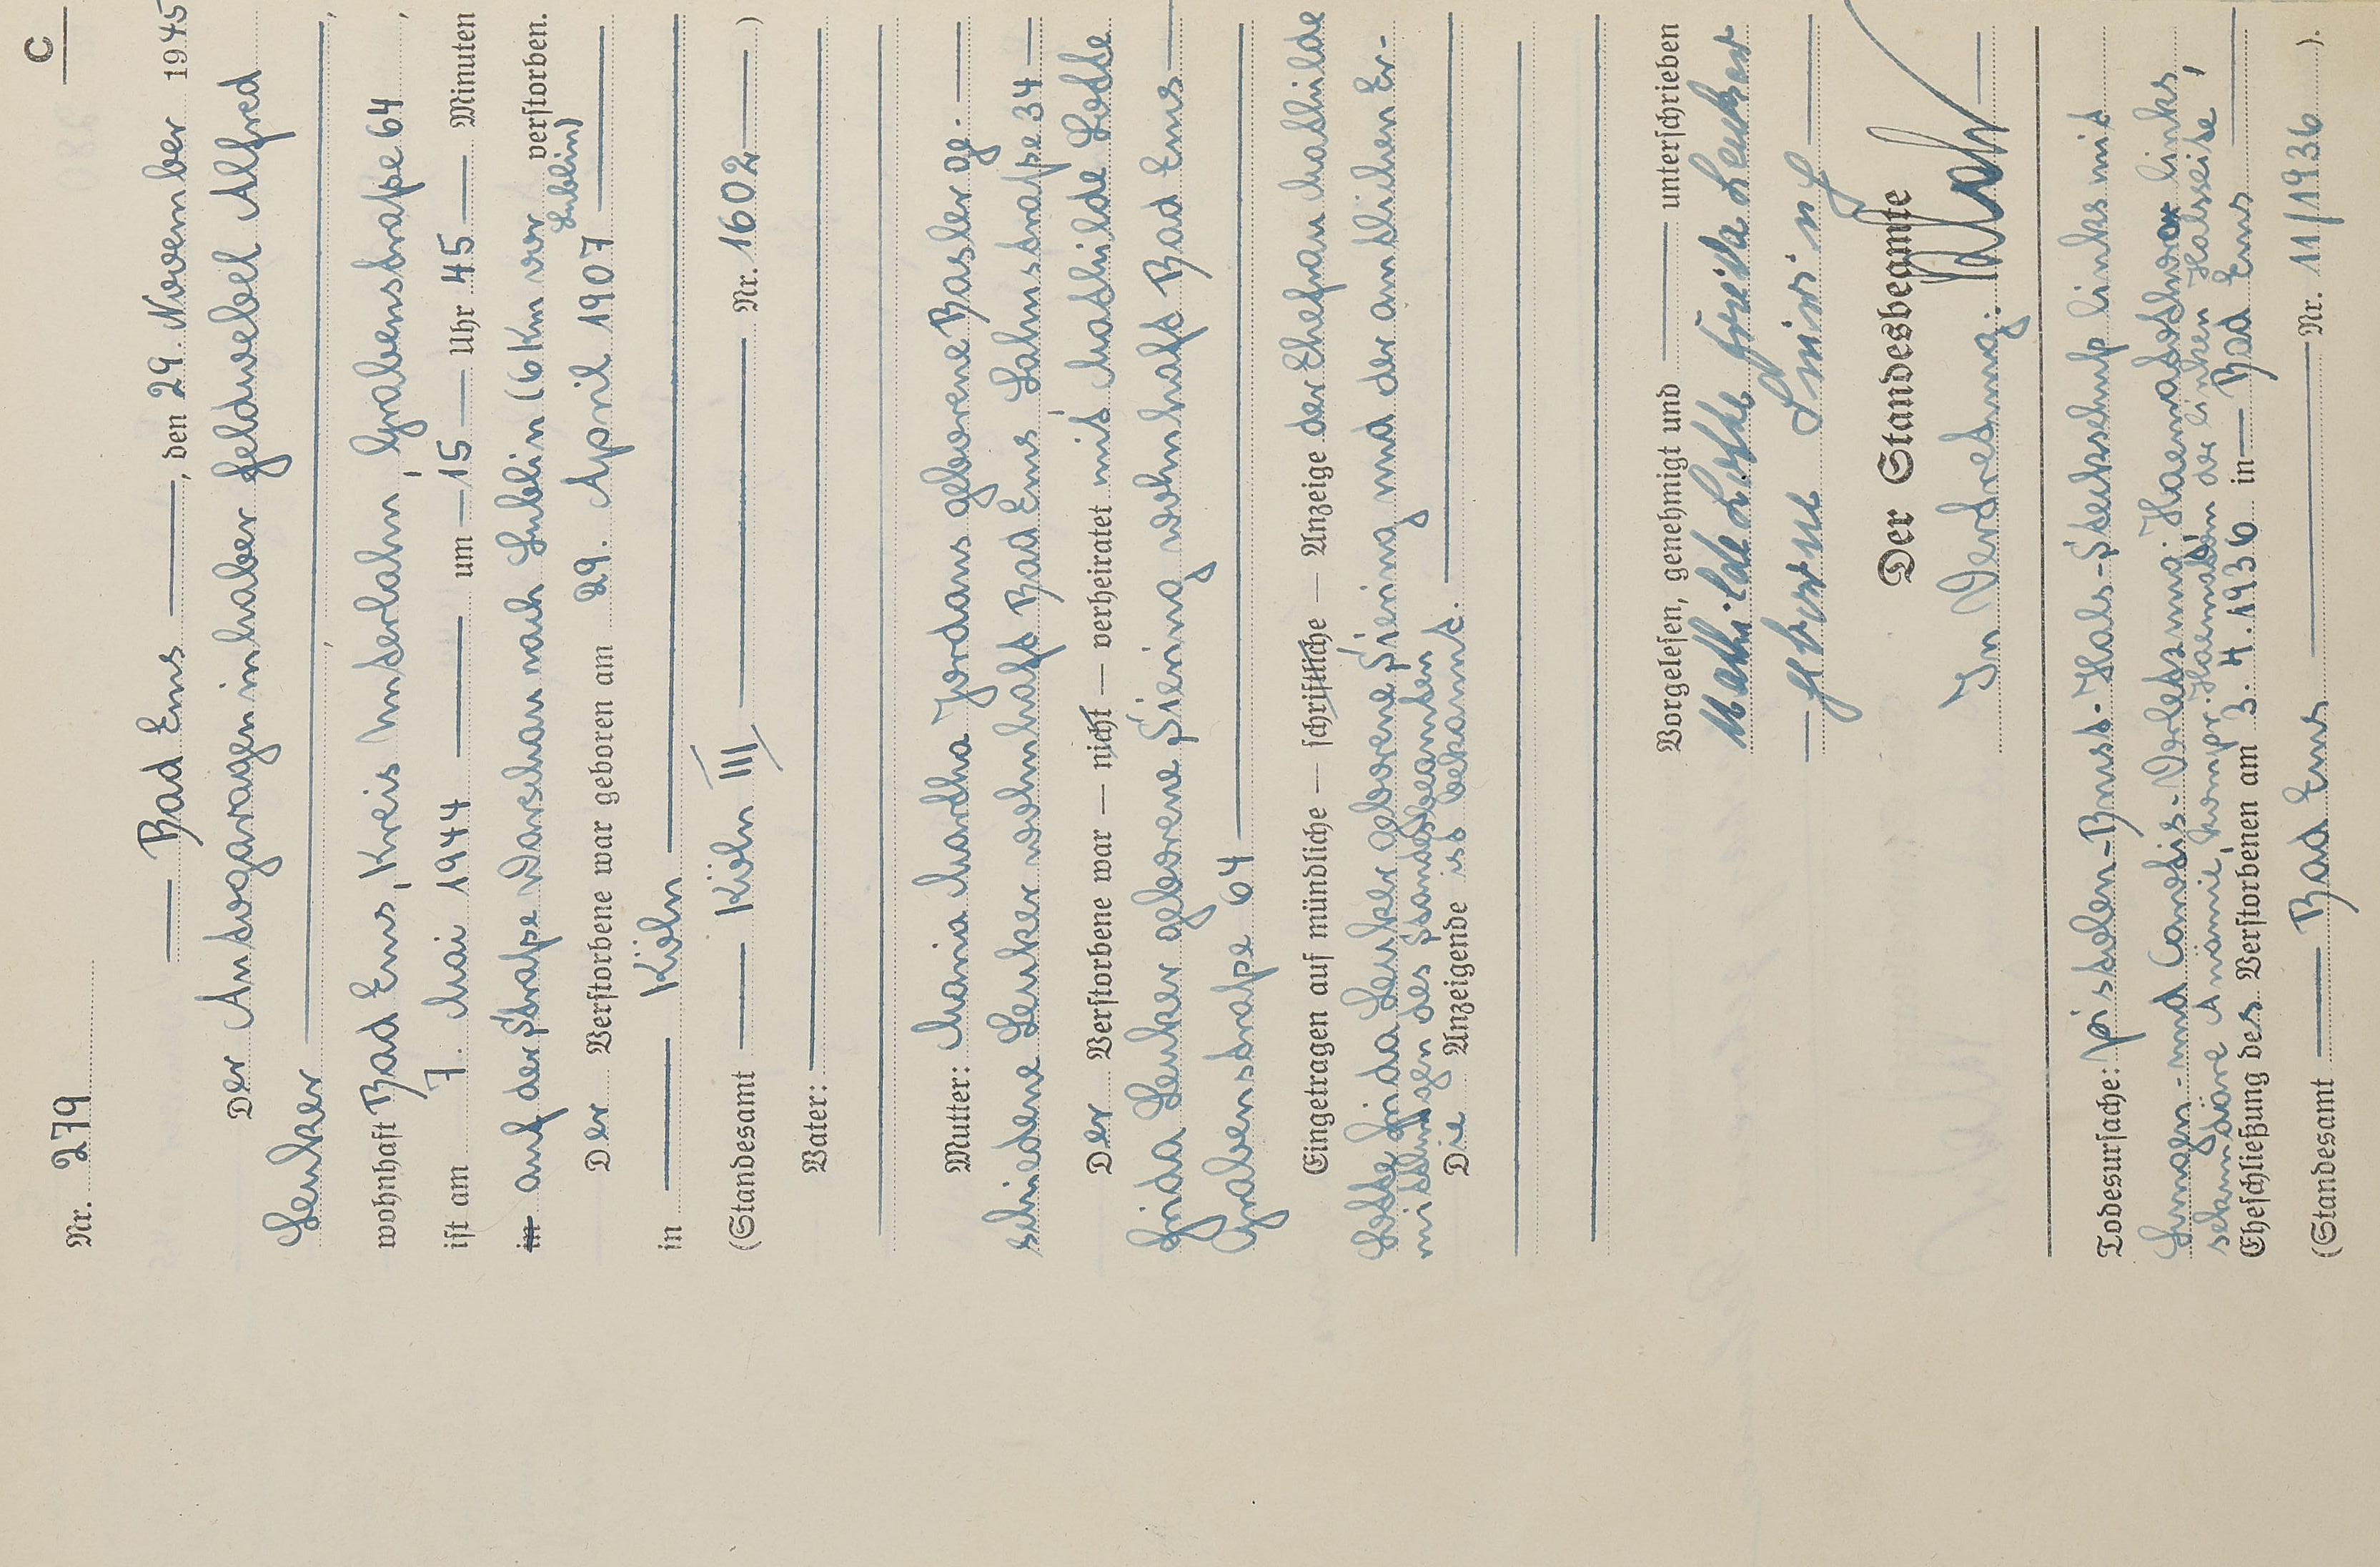 C
Nr. 279
Bad Ems, den 29. November 1945
Der Autogarageninhaber Feldwebel Alfred
Lenker
wohnhaft Bad Ems, Kreis Unterlahn, Grabenstraße 64,
ist am 7. Mai 1944 um 15 Uhr 45 Minuten
in auf der Straße Warschau nach Lublin (6 km vor verstorben.
Lublin)
Der Verstorbene war geboren am 29. April 1907
in Köln
(Standesamt Köln III Nr. 1602)
Vater:
Mutter: Maria Martha Jordans geborene Basler ge-
schiedene Lenker wohnhaft Bad Ems Lahnstraße 34
Der Verstorbene war — nicht — verheiratet mit Mathilde Lotte
Frida Lenker geborene Siering wohnhaft Bad Ems
Grabenstraße 64
Eingetragen auf mündliche — schriftliche — Anzeige der Ehefrau Mathilde
Lotte Frida Lenker geborene Siering und der amtlichen Er-
mittlungen des Standesbeamten
Die Anzeigende ist bekannt.
Vorgelesen, genehmigt und unterschrieben
Mathilde Lotte Frida Lenker
geborene Siering
Der Standesbeamte
In Vertretung:
Todesursache: Pistolen-Brust-Hals-Steckschuß links mit
Lungen- und Carotis-Verletzung. Haematothorax links,
sekundäre Anämie, kompr. Haematom der linken Halsseite,
Eheschließung des Verstorbenen am 3.4.1936 in Bad Ems
(Standesamt Bad Ems Nr. 11/1936).